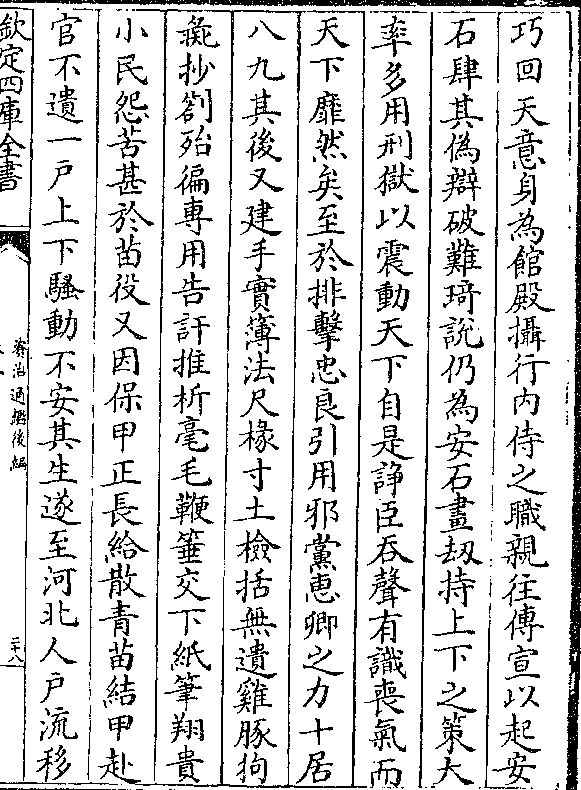 巧回天意身為館殿攝行内侍之職親往傳宣以起安
石肆其偽辯破難琦說仍為安石畫刼持上下之策大
率多用刑獄以震動天下自是諍臣吞聲有識喪氣而
天下靡然矣至於排擊忠良引用邪黨惠卿之力十居
八九其後又建手實簿法尺椽寸土檢括無遺雞豚狗
彘抄劄殆徧專用告訐推析毫毛鞭箠交下紙筆翔貴
小民怨苦甚於苗役又因保甲正長給散青苗結甲赴
官不遺一户上下騷動不安其生遂至河北人户流移
欽定四庫全書
資治通鑑後編
二十八